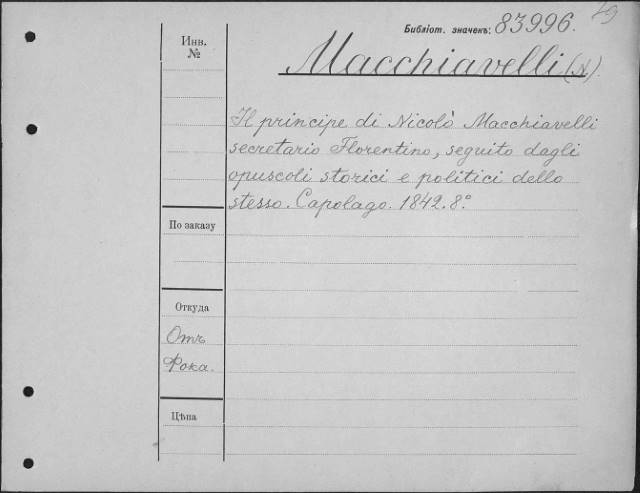 Библіот. значекъ: 83996.
Инв.
№
Macchiavelli (N).
Il principe di Nicolò Macchiavelli
secretario Florentino, seguito dagli
opuscoli storici e politici dello
stesso. Capolago. 1842. 8º
По заказу
Откуда
Отъ
Фока.
Цѣна